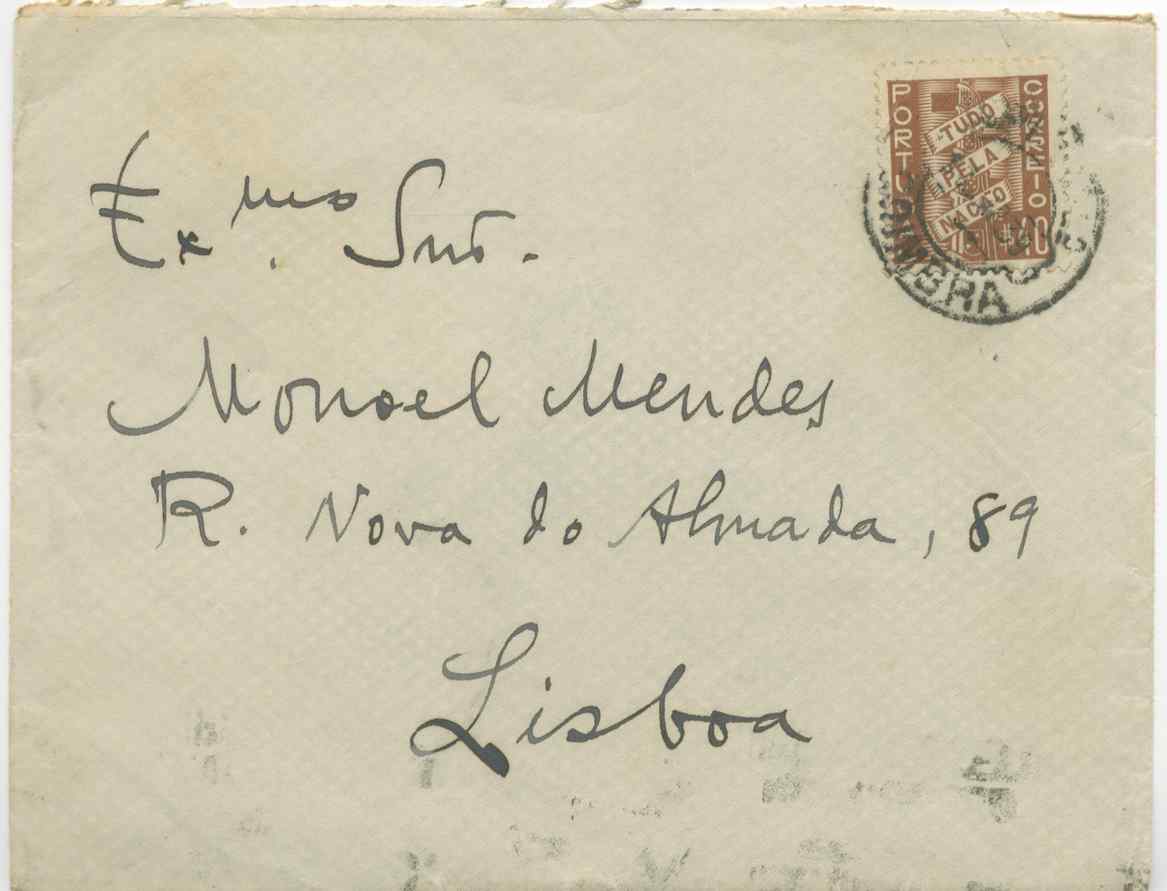 PORTU CORREIO
TUDO
PELA
NAÇÃO
$40
COIMBRA
Ex.mo Snr.
Manoel Mendes
R. Nova do Almada, 89
Lisboa